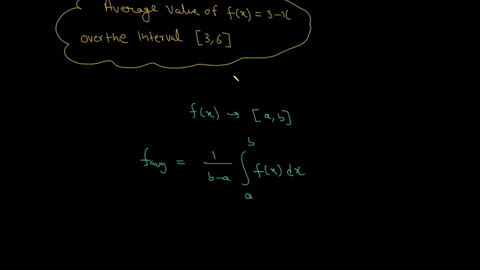 Average value of f(x) = 3-x
over the Interval [3,6]
f(x) → [a,b]
f_avg = 1/(b-a) ∫_a^b f(x) dx